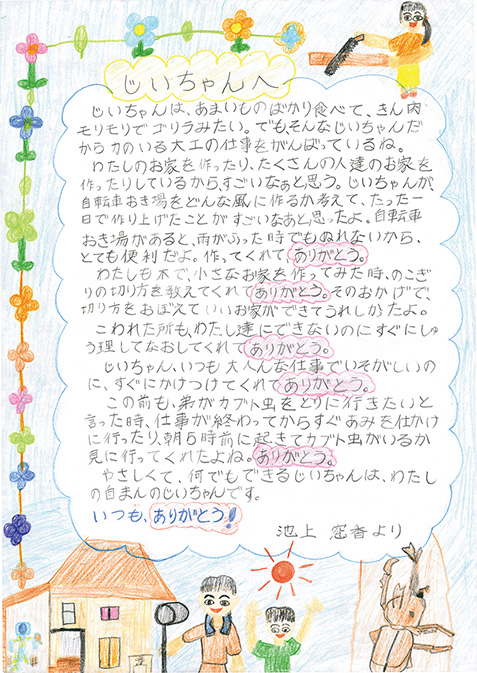 じいちゃんへ
じいちゃんは、あまいものばかり食べて、きん肉
モリモリでゴリラみたい。でもそんなじいちゃんだ
から力のいる大工の仕事をがんばっているね。
わたしのお家を作ったり、たくさんの人達のお家を
作ったりしているから、すごいなぁと思う。じいちゃんが、
自転車おき場をどんな風に作るか考えて、たった一
日で作り上げたことがすごいなあと思ったよ。自転車
おき場があると、雨がふった時でもぬれないから、
とても便利だよ。作ってくれてありがとう。
わたしも木で、小さなお家を作ってみた時、のこぎ
りの切り方を教えてくれてありがとう。そのおかげで、
切り方をおぼえていいお家ができてうれしかったよ。
こわれた所も、わたし達にできないのにすぐにしゅ
う理してなおしてくれてありがとう。
じいちゃん、いつも大へんな仕事でいそがしいの
に、すぐにかけつけてくれてありがとう。
この前も、弟がカブト虫をとりに行きたいと
言った時、仕事が終わってからすぐあみを仕かけ
に行ったり、朝5時前に起きてカブト虫がいるか
見に行ってくれたよね。ありがとう。
やさしくて、何でもできるじいちゃんは、わたし
の自まんのじいちゃんです。
いつも、ありがとう!
池上 香より